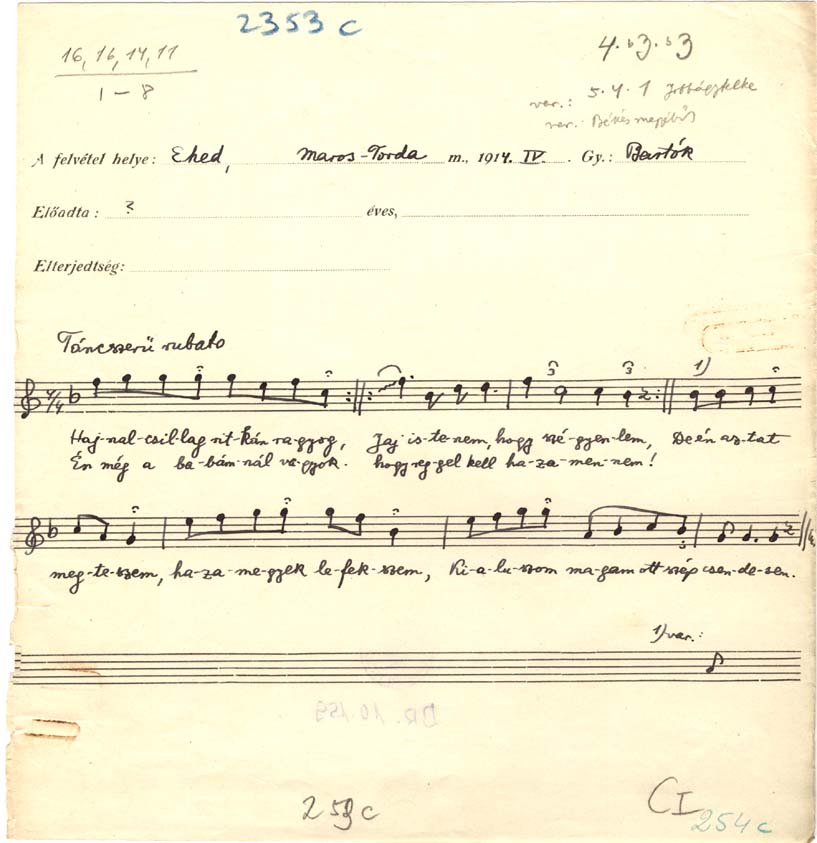 2353 c
16, 16, 14, 11
1 – 8
4. b3. b3
var.: 5. 4. 1 Jobbágytelke
var.: Békés megyéből
A felvétel helye: Ehed, Maros-Torda m., 1914. IV. Gy.: Bartók
Előadta: ? éves,
Elterjedtség:
Táncszerű rubato
4/4 3 3 1)
Haj-nal-csil-lag rit-kán ra-gyog, Jaj is-te-nem, hogy szé-gyen-lem, De én az-tat
Én még a ba-bám-nál va-gyok. hogy reg-gel kell ha-za men-nem!
3
meg-te-szem, ha-za-me-gyek le-fek-szem, Ki-a-lu-szom ma-gam ott szép csen-de-sen.
1) var.:
DR. 10.159
253 c
CI
254 c